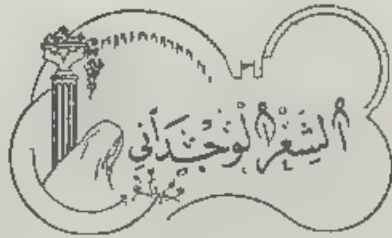 الشِّعْرُ الْوُجْدَانِي